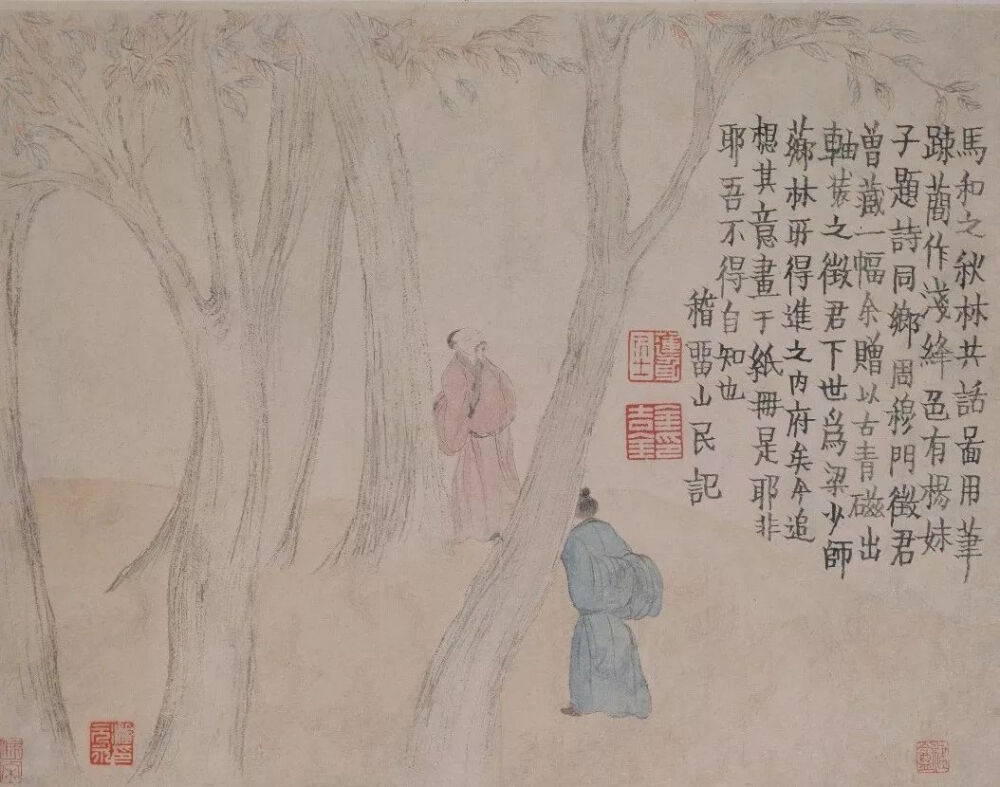 馬和之秋林共話啚用筆
踈蕳作淺絳色有楊妹
子題詩同鄉周穆門徵君
曽藏一幅余贈以古青磁出
軸裝之徵君下世為梁少師
薌林所得進之内府矣今追
想其意畫于紙冊是耶非
耶吾不得自知也
稽畱山民記
蓮身居士
金印吉金